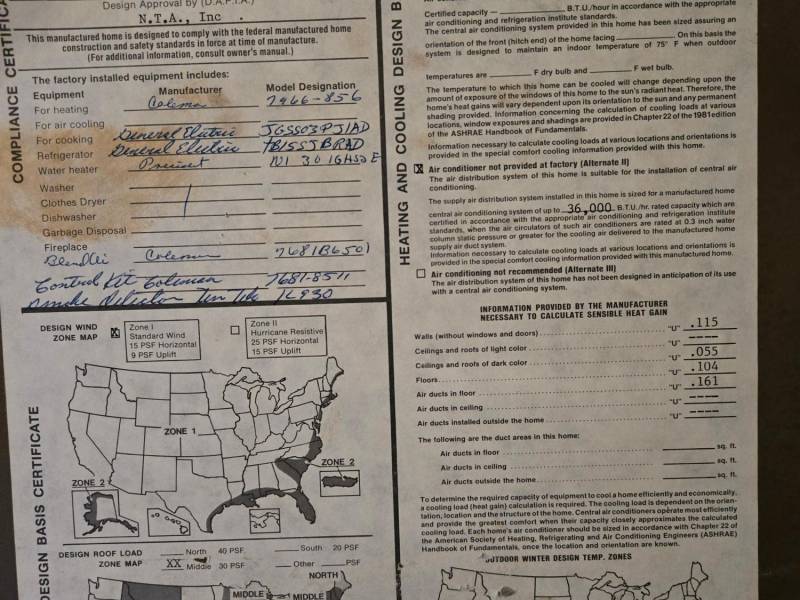 Design Approval by (D.A.P.I.A.)
N.T.A., Inc.
This manufactured home is designed to comply with the federal manufactured home
construction and safety standards in force at time of manufacture.
(For additional information, consult owner's manual.)
COMPLIANCE CERTIFICA
The factory installed equipment includes:
Equipment Manufacturer Model Designation
For heating Coleman 7966-856
For air cooling
For cooking General Electric JGSS03PJ1AD
Refrigerator General Electric TB15SJBRAD
Water heater
Washer
Clothes Dryer
Dishwasher
Garbage Disposal
Fireplace
Blend Air Coleman 7681B6501
Control Kit Coleman 7681-8511
Smoke Detector
DESIGN BASIS CERTIFICATE
DESIGN WIND
ZONE MAP
X Zone I
Standard Wind
15 PSF Horizontal
9 PSF Uplift
Zone II
Hurricane Resistive
25 PSF Horizontal
15 PSF Uplift
ZONE 1
ZONE 2
ZONE 2
DESIGN ROOF LOAD
ZONE MAP
North 40 PSF South 20 PSF
XX Middle 30 PSF Other PSF
NORTH
MIDDLE MIDDLE
HEATING AND COOLING DESIGN B
Certified capacity — B.T.U./hour in accordance with the appropriate
air conditioning and refrigeration institute standards.
The central air conditioning system provided in this home has been sized assuming an
orientation of the front (hitch end) of the home facing . On this basis the
system is designed to maintain an indoor temperature of 75° F when outdoor
temperatures are F dry bulb and F wet bulb.
The temperature to which this home can be cooled will change depending upon the
amount of exposure of the windows of this home to the sun's radiant heat. Therefore, the
home's heat gains will vary dependent upon its orientation to the sun and any permanent
shading provided. Information concerning the calculation of cooling loads at various
locations, window exposures and shadings are provided in Chapter 22 of the 1981 edition
of the ASHRAE Handbook of Fundamentals.
Information necessary to calculate cooling loads at various locations and orientations is
provided in the special comfort cooling information provided with this home.
X Air conditioner not provided at factory (Alternate II)
The air distribution system of this home is suitable for the installation of central air
conditioning.
The supply air distribution system installed in this home is sized for a manufactured home
central air conditioning system of up to 36,000 B.T.U./hr. rated capacity which are
certified in accordance with the appropriate air conditioning and refrigeration institute
standards, when the air circulators of such air conditioners are rated at 0.3 inch water
column static pressure or greater for the cooling air delivered to the manufactured home
supply air duct system.
Information necessary to calculate cooling loads at various locations and orientations is
provided in the special comfort cooling information provided with this manufactured home.
Air conditioning not recommended (Alternate III)
The air distribution system of this home has not been designed in anticipation of its use
with a central air conditioning system.
INFORMATION PROVIDED BY THE MANUFACTURER
NECESSARY TO CALCULATE SENSIBLE HEAT GAIN
Walls (without windows and doors) "U" .115
Ceilings and roofs of light color "U" ----
Ceilings and roofs of dark color "U" .055
Floors "U" .104
Air ducts in floor "U" .161
Air ducts in ceiling "U" ----
Air ducts installed outside the home "U" ----
The following are the duct areas in this home:
Air ducts in floor sq. ft.
Air ducts in ceiling sq. ft.
Air ducts outside the home sq. ft.
To determine the required capacity of equipment to cool a home efficiently and economically,
a cooling load (heat gain) calculation is required. The cooling load is dependent on the orien-
tation, location and the structure of the home. Central air conditioners operate most efficiently
and provide the greatest comfort when their capacity closely approximates the calculated
cooling load. Each home's air conditioner should be sized in accordance with Chapter 22 of
the American Society of Heating, Refrigerating and Air Conditioning Engineers (ASHRAE)
Handbook of Fundamentals, once the location and orientation are known.
OUTDOOR WINTER DESIGN TEMP. ZONES